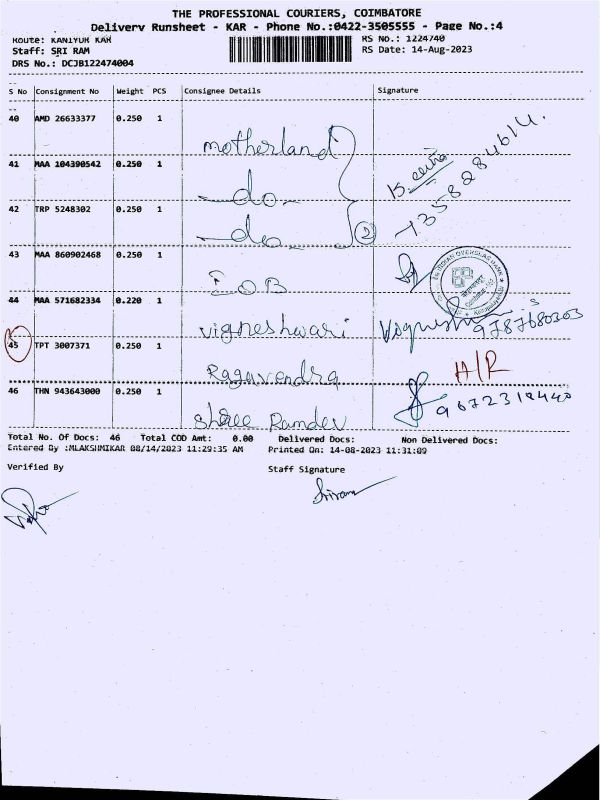 THE PROFESSIONAL COURIERS, COIMBATORE
Delivery Runsheet - KAR - Phone No.:0422-3505555 - Page No.:4
Route: KANIYUR KAR RS No.: 1224740
Staff: SRI RAM RS Date: 14-Aug-2023
DRS No.: DCJB122474004
S No Consignment No Weight PCS Consignee Details Signature
40 AMD 26633377 0.250 1 motherland
41 MAA 104390542 0.250 1 -do-
42 TRP 5248302 0.250 1 -do- 2
43 MAA 860902468 0.250 1 IOB
INDIAN OVERSEAS BANK
44 MAA 571682334 0.220 1 vigneshwari 9787680303
45 TPT 3007371 0.250 1 Ragavendra H/R
46 THN 943643000 0.250 1 Shree Ramdev
Total No. Of Docs: 46 Total COD Amt: 0.00 Delivered Docs: Non Delivered Docs:
Entered By :MLAKSHMIKAR 08/14/2023 11:29:35 AM Printed On: 14-08-2023 11:31:09
Verified By Staff Signature
Sriram